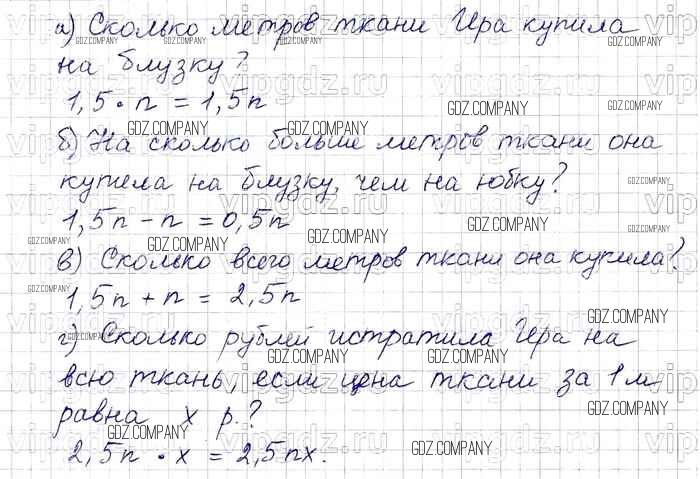 а) Сколько метров ткани Ира купила
на блузку?
1,5 • n = 1,5n
б) На сколько больше метров ткани она
купила на блузку, чем на юбку?
1,5n − n = 0,5n
в) Сколько всего метров ткани она купила?
1,5n + n = 2,5n
г) Сколько рублей истратила Ира на
всю ткань, если цена ткани за 1 м
равна x р.?
2,5n • x = 2,5nx.